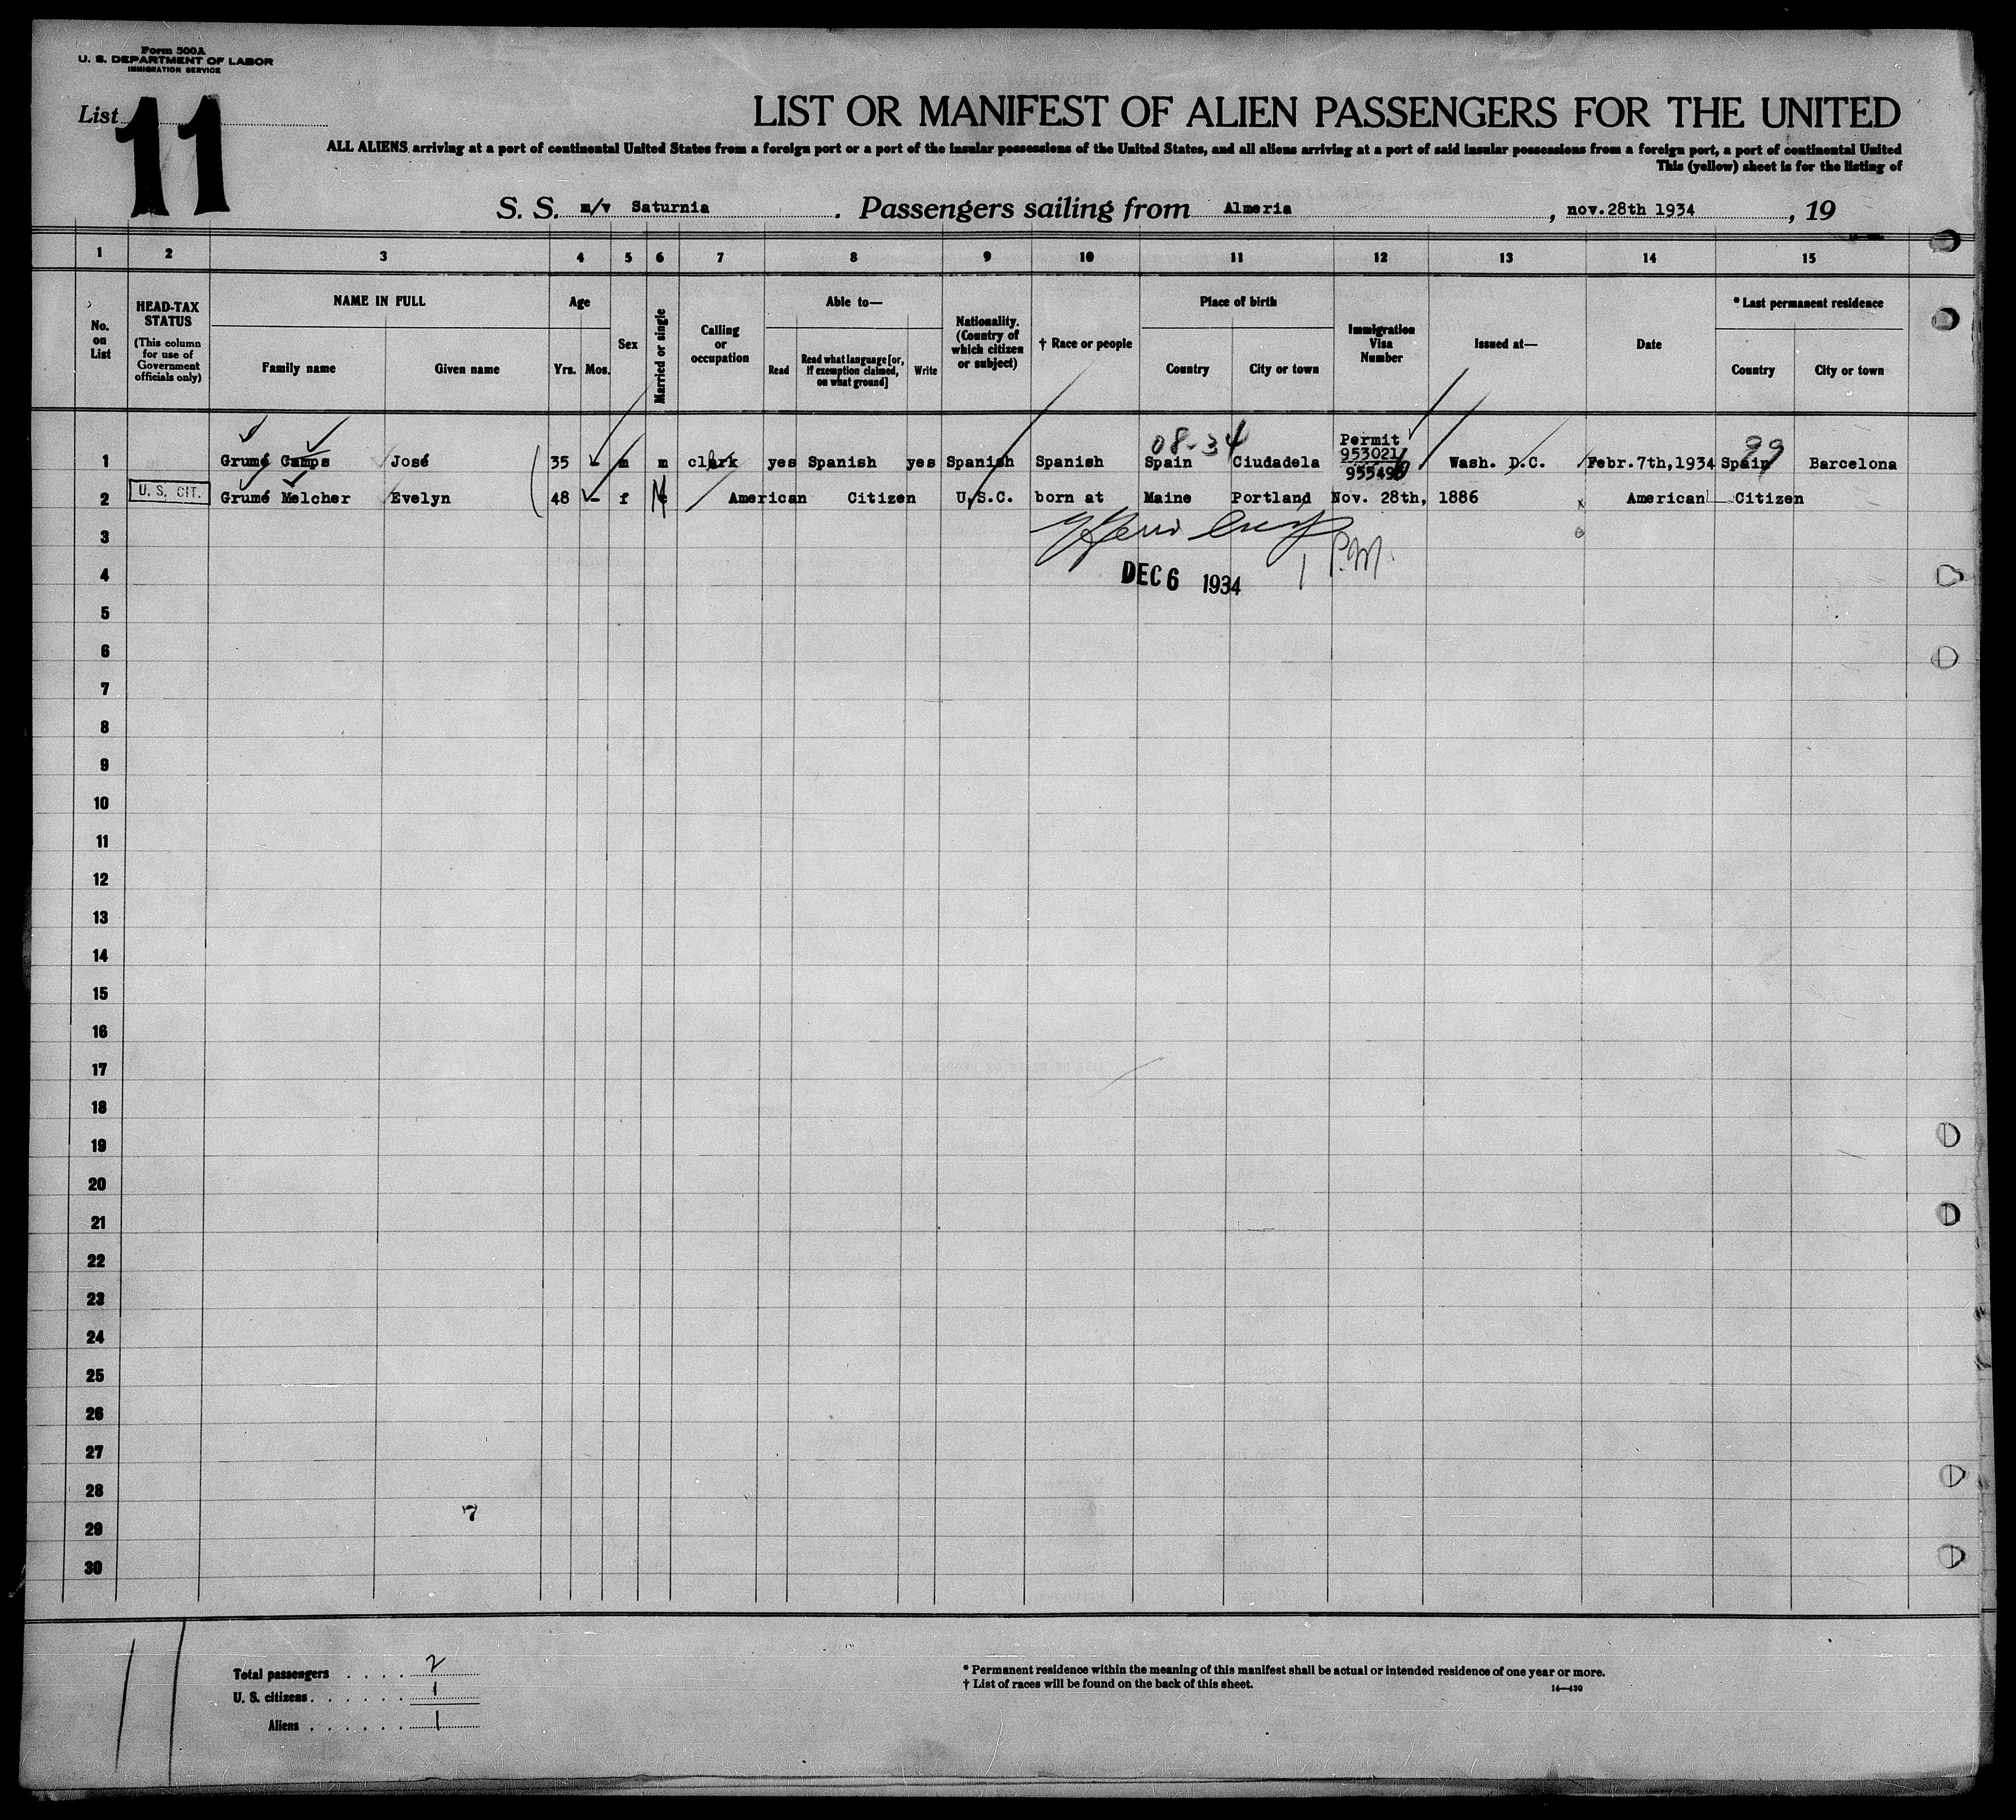 Form 500A
U. S. DEPARTMENT OF LABOR
IMMIGRATION SERVICE
List 11
LIST OR MANIFEST OF ALIEN PASSENGERS FOR THE UNITED
ALL ALIENS arriving at a port of continental United States from a foreign port or a port of the insular possessions of the United States, and all aliens arriving at a port of said insular possessions from a foreign port, a port of continental United
This (yellow) sheet is for the listing of
S. S. m/v Saturnia . Passengers sailing from Almeria , nov.28th 1934 , 19
1 2 3 4 5 6 7 8 9 10 11 12 13 14 15
No. on List
HEAD-TAX STATUS
(This column for use of Government officials only)
NAME IN FULL
Family name Given name
Age
Yrs. Mos.
Sex
Married or single
Calling or occupation
Able to—
Read Read what language [or, if exemption claimed, on what ground] Write
Nationality. (Country of which citizen or subject)
† Race or people
Place of birth
Country City or town
Immigration Visa Number
Issued at—
Date
* Last permanent residence
Country City or town
08-34 Permit 99
1 Grumé Camps José 35 - m m clerk yes Spanish yes Spanish Spanish Spain Ciudadela 953021 Wash. D.C. Febr.7th,1934 Spain Barcelona
2 U. S. CIT. Grumé Melcher Evelyn 48 - f M American Citizen U.S.C. born at Maine Portland Nov. 28th, 1886 American Citizen
3
P.M.
4 DEC 6 1934
5
6
7
8
9
10
11
12
13
14
15
16
17
18
19
20
21
22
23
24
25
26
27
28
7
29
30
Total passengers . . . . 2
U. S. citizens . . . . . . 1
Aliens . . . . . . 1
* Permanent residence within the meaning of this manifest shall be actual or intended residence of one year or more.
† List of races will be found on the back of this sheet.
14—430